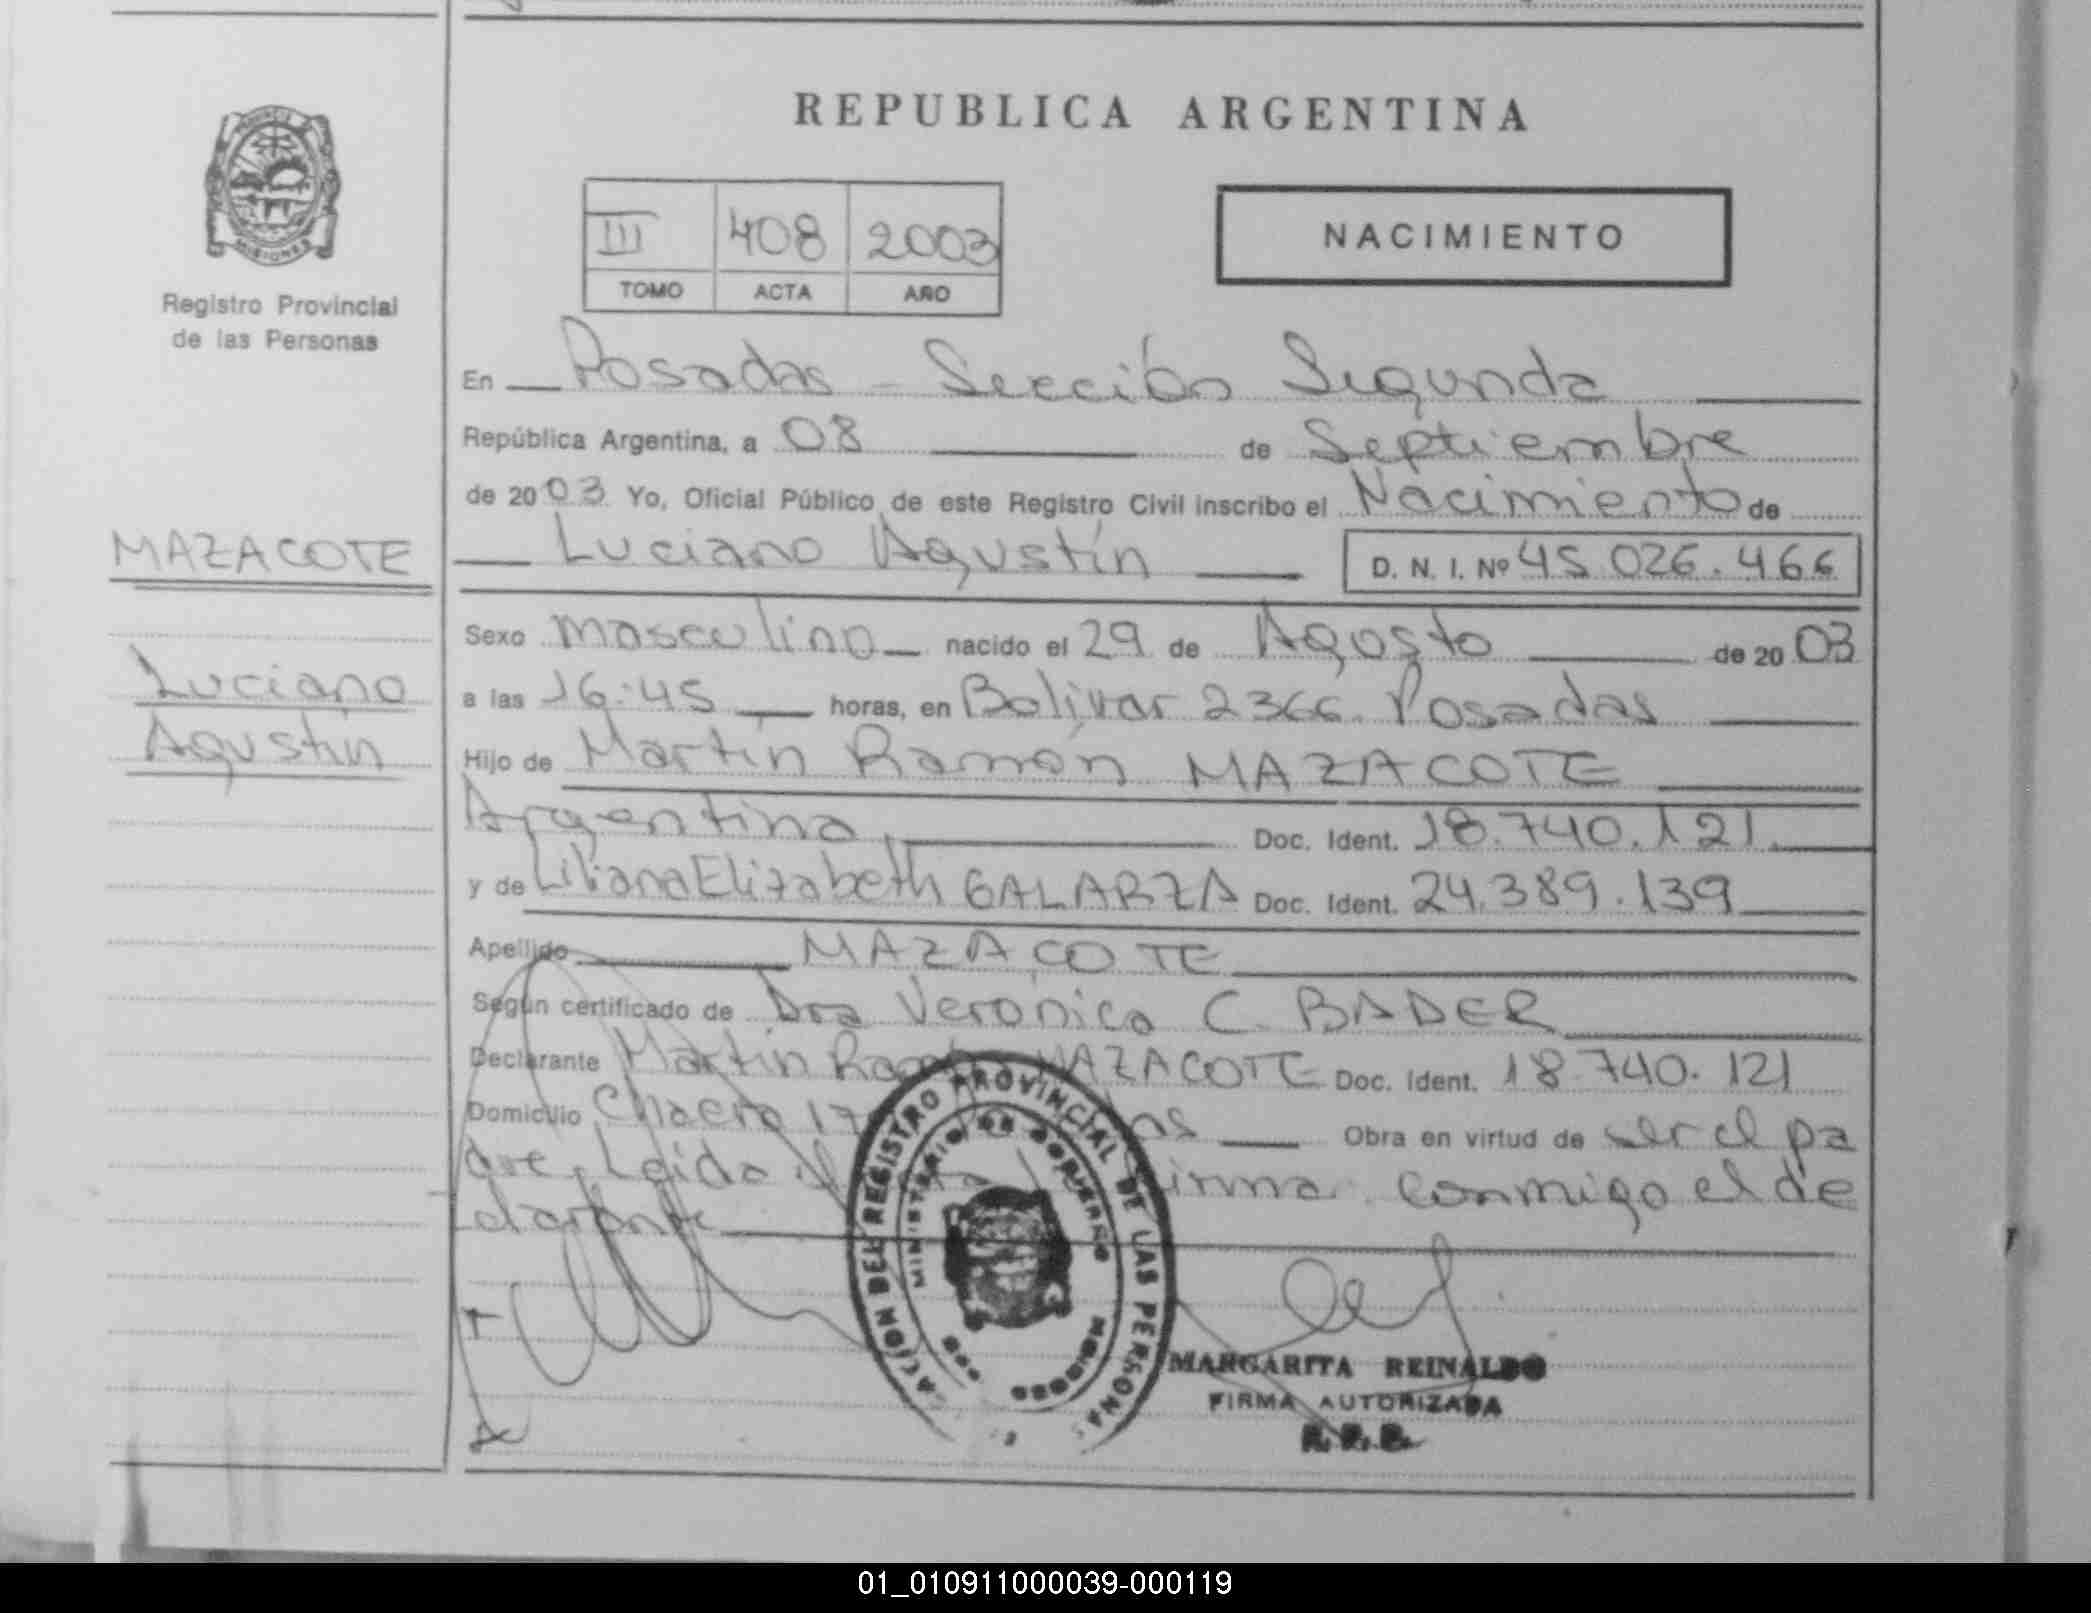 REPUBLICA ARGENTINA
III 408 2003
TOMO ACTA AÑO
NACIMIENTO
PROVINCIA
MISIONES
Registro Provincial
de las Personas
En Posadas - Sección Segunda
República Argentina, a 08 de Septiembre
de 2003 Yo, Oficial Público de este Registro Civil inscribo el Nacimiento de
MAZACOTE
Luciano Agustín D. N. I. Nº 45 026.466
Sexo masculino nacido el 29 de Agosto de 2003
Luciano
Agustín
a las 16:45 horas, en Bolívar 2366 Posadas
Hijo de Martín Ramón MAZACOTE
Argentina Doc. Ident. 18.740.121.
y de Liliana Elizabeth GALARZA Doc. Ident. 24.389.139
Apellido MAZACOTE
Según certificado de Dra Veronica C. BADER
Declarante Martín MAZACOTE Doc. Ident. 18.740.121
Domicilio as Obra en virtud de ser el pa
dre, Leida conmigo el de
clarante
REGISTRO PROVINCIAL DE LAS PERSONAS
MINISTERIO DE GOBIERNO
MISIONES
MARGARITA REINALDO
FIRMA AUTORIZADA
01_010911000039-000119